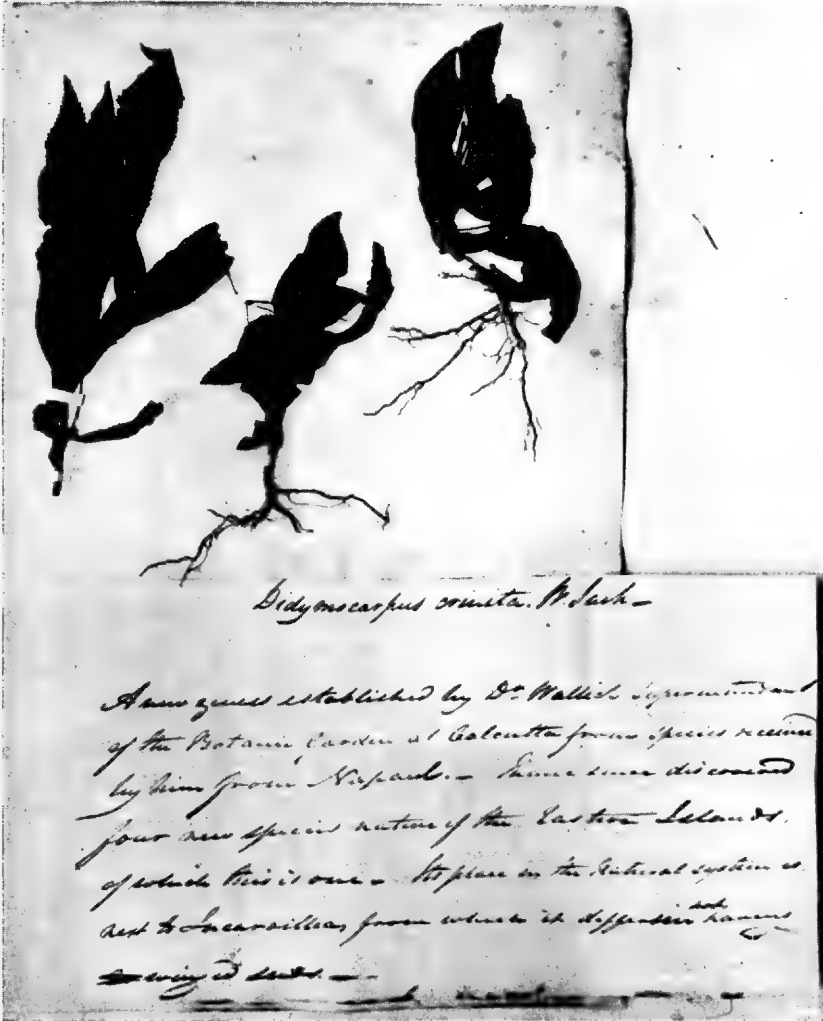 Didymocarpus crinita. W. Jack –
A new genus established by Dr. Wallich Superintendant
of the Botanic Garden at Calcutta from species received
by him from Napaul. – I have since discovered
four new species natives of the Eastern Islands,
of which this is one – Its place in the Natural system is
next to Incarvillea, from which it differs in not having
winged seeds. –